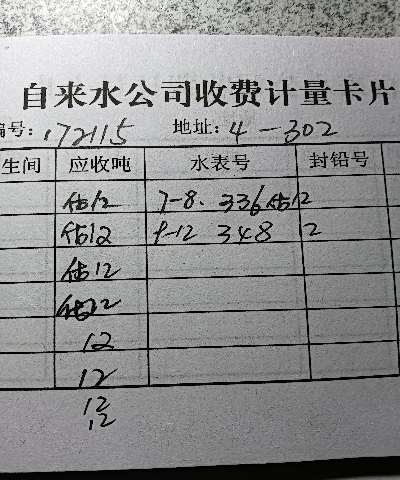 自来水公司收费计量卡片
编号: 172115 地址: 4-302
生间 应收吨 水表号 封铅号
估12 7-8. 336 估12
估12 9-12 348 12
估12
估12
12
12
12
12